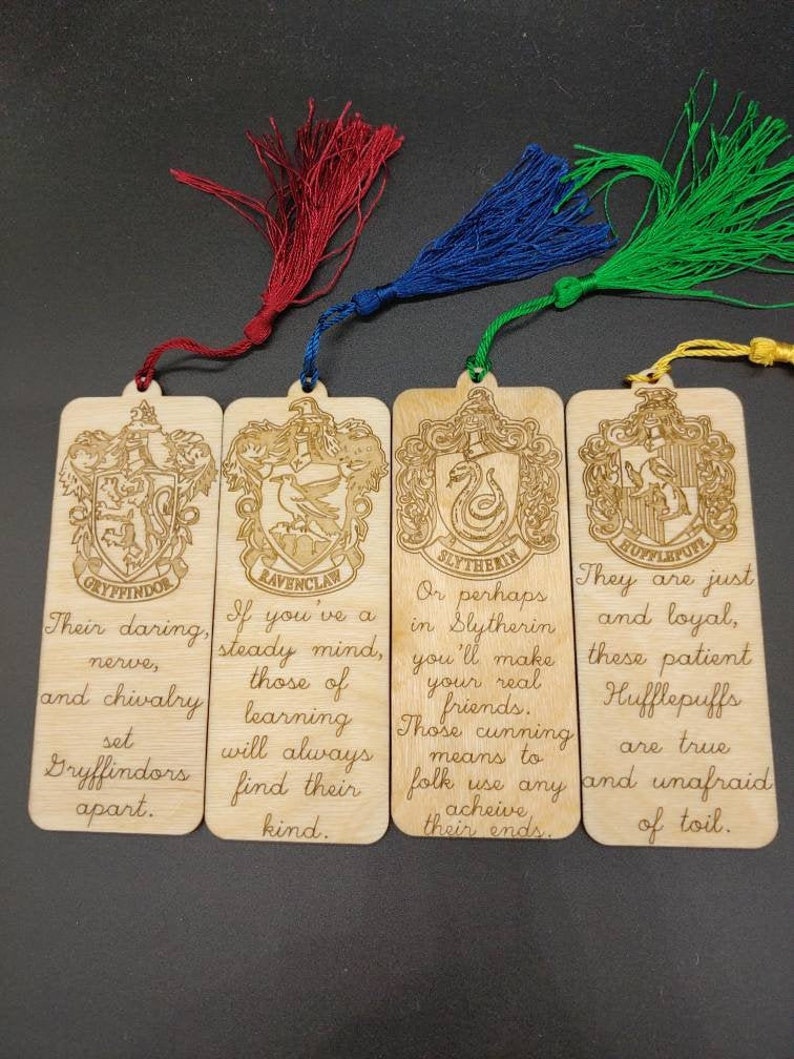 GRYFFINDOR
Their daring,
nerve,
and chivalry
set
Gryffindors
apart.
RAVENCLAW
If you've a
steady mind,
those of
learning
will always
find their
kind.
SLYTHERIN
Or perhaps
in Slytherin
you'll make
your real
friends.
Those cunning
means to
folk use any
acheive
their ends.
HUFFLEPUFF
They are just
and loyal,
these patient
Hufflepuffs
are true
and unafraid
of toil.